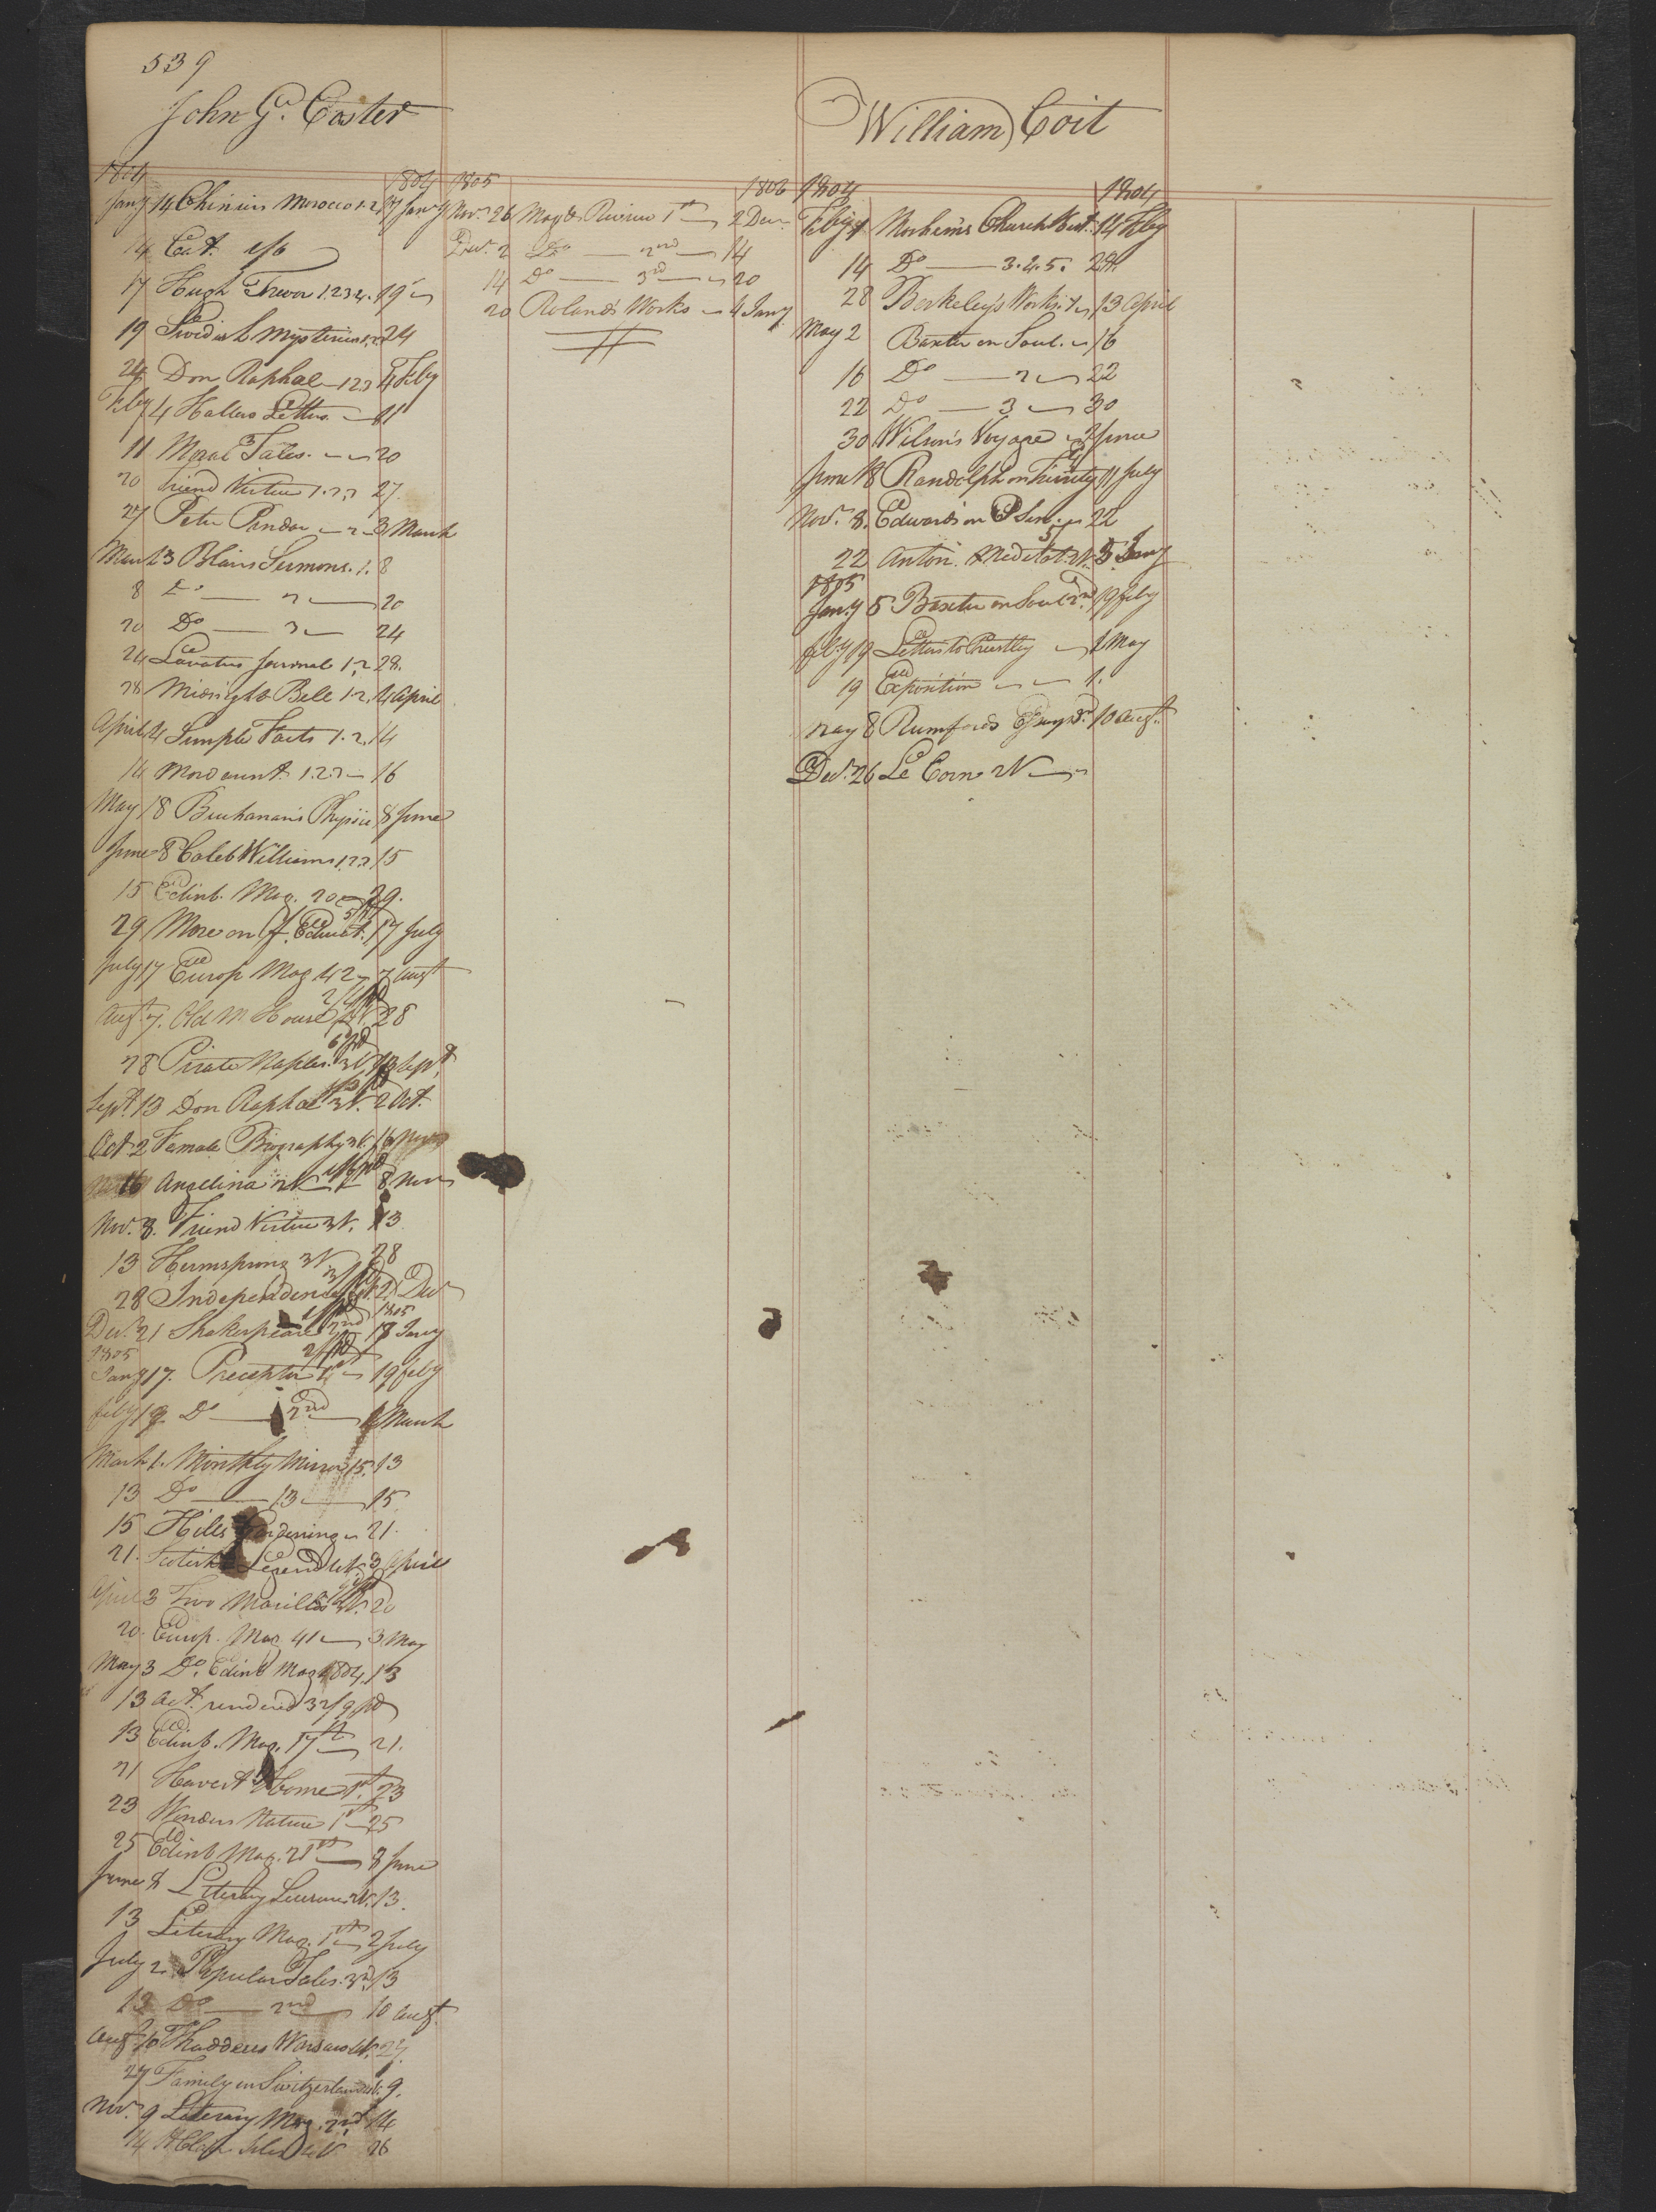 539
John G. Coster
1804 1804
Jany 14 Cheniers Morocco 1.2 17 Jany
14 Cat. 1/6
17 Hugh Trevor 1.2.3.4. 19
19 Swedish Mysteries 1.2.3 24
24 Don Raphael 1.2.3 4 Feby
Feby 4 Hallers Letters 11
11 Moral Tales. 3 20
20 Friend Virtue 1.2.3 27
27 Peter Pindar 2 3 March
March 3 Blairs Sermons. 1. 8
8 Do 2 20
20 Do 3 24
24 Lavaters Journal 1.2 28.
28 Midnight Bell 1.2. 4 April
April 4 Simple Facts 1.2. 14
14 Mordaunt 1.2.3 16
May 18 Buchanan's Physic 8 June
June 8 Caleb Williams 1.2.3 15
15 Edinb. Mag. 20 29.
29 More on F. Educat. 17 July
July 17 Europ Mag 42 7 Augt
Augt 7. Old M House 4V. 28
28 Pirate Naples. 3V. 13 Sept.
Sept. 13 Don Raphael 3V. 2 Oct.
Oct 2 Female Biography 3V. 16
16 Angelina 2V 1/6 pd 8 Nov
Nov. 8. Friend Virtue 3V. 13
13 Hermsprong 3V 28
28 Independence 21 Decr
Decr. 21 Shakespeare 2nd 17 Jany 1805
1805
Jany 17. Preceptor 1st 19 feby
feby 19 Do 2nd 1 March
March 1. Monthly Mirror 15. 13
13 Do 13 15
15 Hills Gardening 21.
21. Scotish Legend 4V. 3 April
April 3 Two Marillos 3V. 20
20. Europ. Mag 41 3 May
May 3 Do. Edinb Mag 1804. 13
13 Act. rendered 32/9 pd
13 Edinb. Mag. 17th 21.
21 Harvest Home 1st. 23
23 Wonders Nature 1st 25
25 Edinb Mag. 21st 8 June
June 8 Literary Leisure 2V. 13.
13 Literary Mag. 1st 2 July
July 2. Popular Tales. 3rd 13
13 Do 2nd 10 Augt.
Augt 10 Thaddeus Warsaw 4V. 27.
27 Family in Switzerland 9.
Nov. 9 Literary Mag. 2nd 14
14 St Clair Isles 4V 26
1805 1806
Novr. 26 Mag & Review 1st 2 Decr
Decr. 2 Do 2nd 14
14 Do 3rd 20
20 Roland's Works 4 Jany
William Coit
1804 1804
Feby 1 Mosheim's Church Hist. 14 Feby
14 Do 3.4.5. 28.
28 Berkeley's Works. 1 13 April
May 2 Baxter on Soul. 16
16 Do 2 22
22 Do 3 30
30 Wilson's Voyage 2 June
June 18 Randolph on Trinity 11 July
Nov. 8. Edwards on 22
22 Anton. Meditat. 2V. 5 Jany
1805
Jany 5 Baxter on Soul 2nd. 19 feby
feby 19 Letters to Priestley 1 May
19 Exposition 1.
May 8 Rumfords Essays 3d. 10 Augt.
Decr. 26 Le Corne 2V